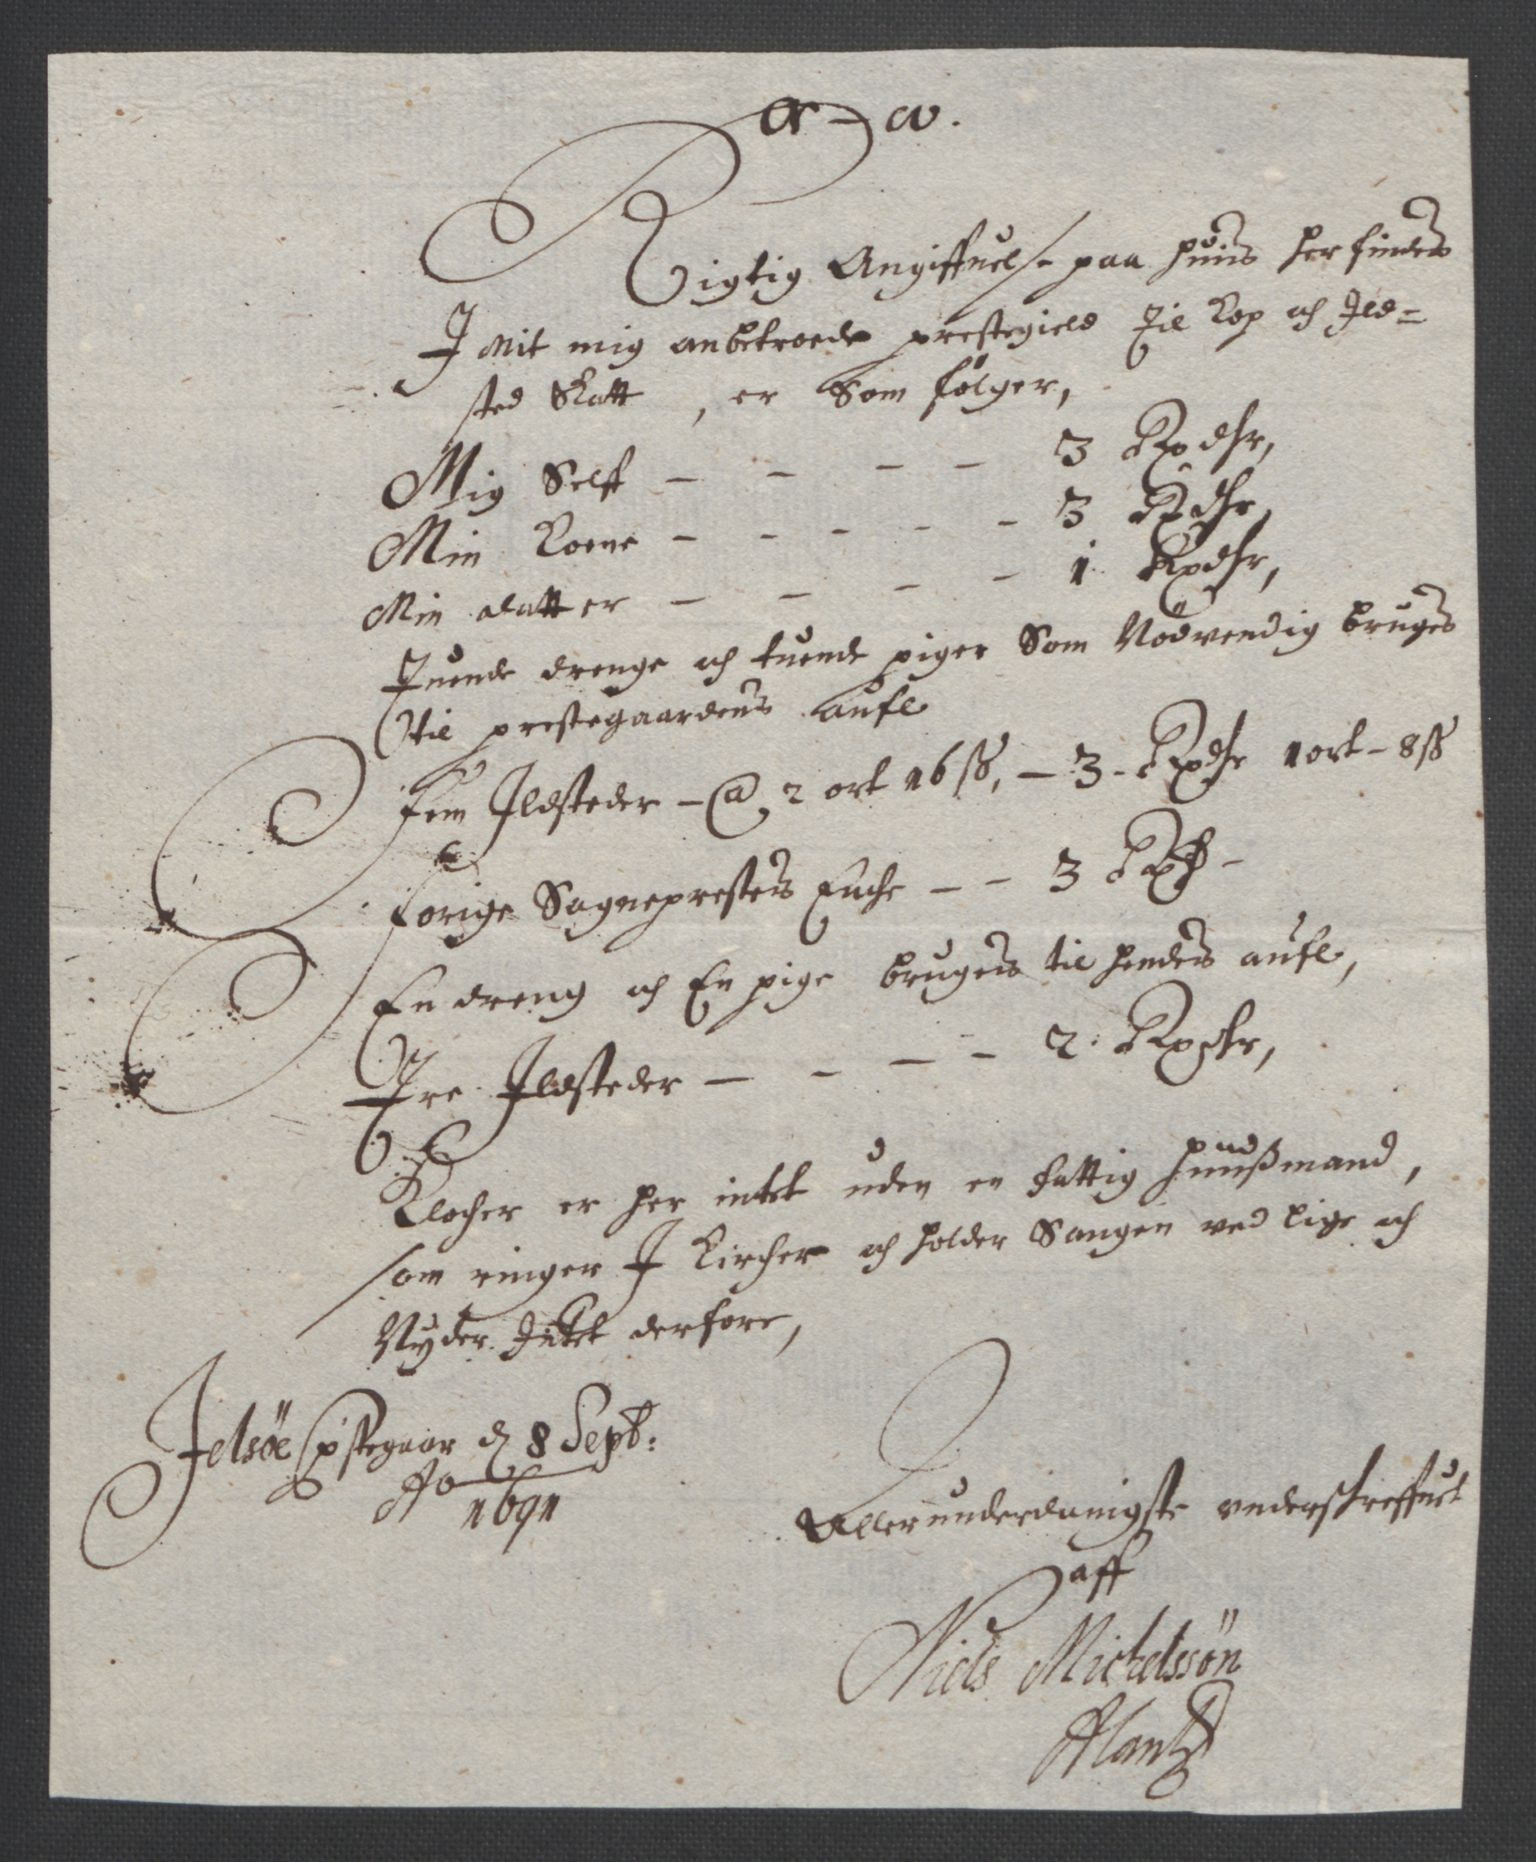 α – ω.
Rigtig Angiffuelse paa huis her findes
I mit mig anbetroede prestegield til Kop och Ild=
sted Skatt, er Som følger,
Mig Self – – – – 3 Rixdlr,
Min Kone – – – – – 3 Rixdlr,
Min datter – – – – 1 Rixdlr,
Tuende drenge och tuende piger Som Nødvendig bruges
til prestegaardens aufl
Fem Ildsteder – @ 2 ort 16 ß, – 3 – Rixdlr 1 ort – 8 ß
Forige Sogneprestes Enche – – 3 Rd –
En dreng och En pige bruges til hendes aufl,
Tre Ildsteder – – – – 2 Rixdlr,
Klocher er her intet uden en fattig huußmand,
som ringer I Kircher och holder Sangen ved lige och
Nyder Intet derfore,
Jelsøe pstegaar d 8 Sept:
Ao 1691
Allerunderdanigste underskreffuet
aff
Niels Michelssøn